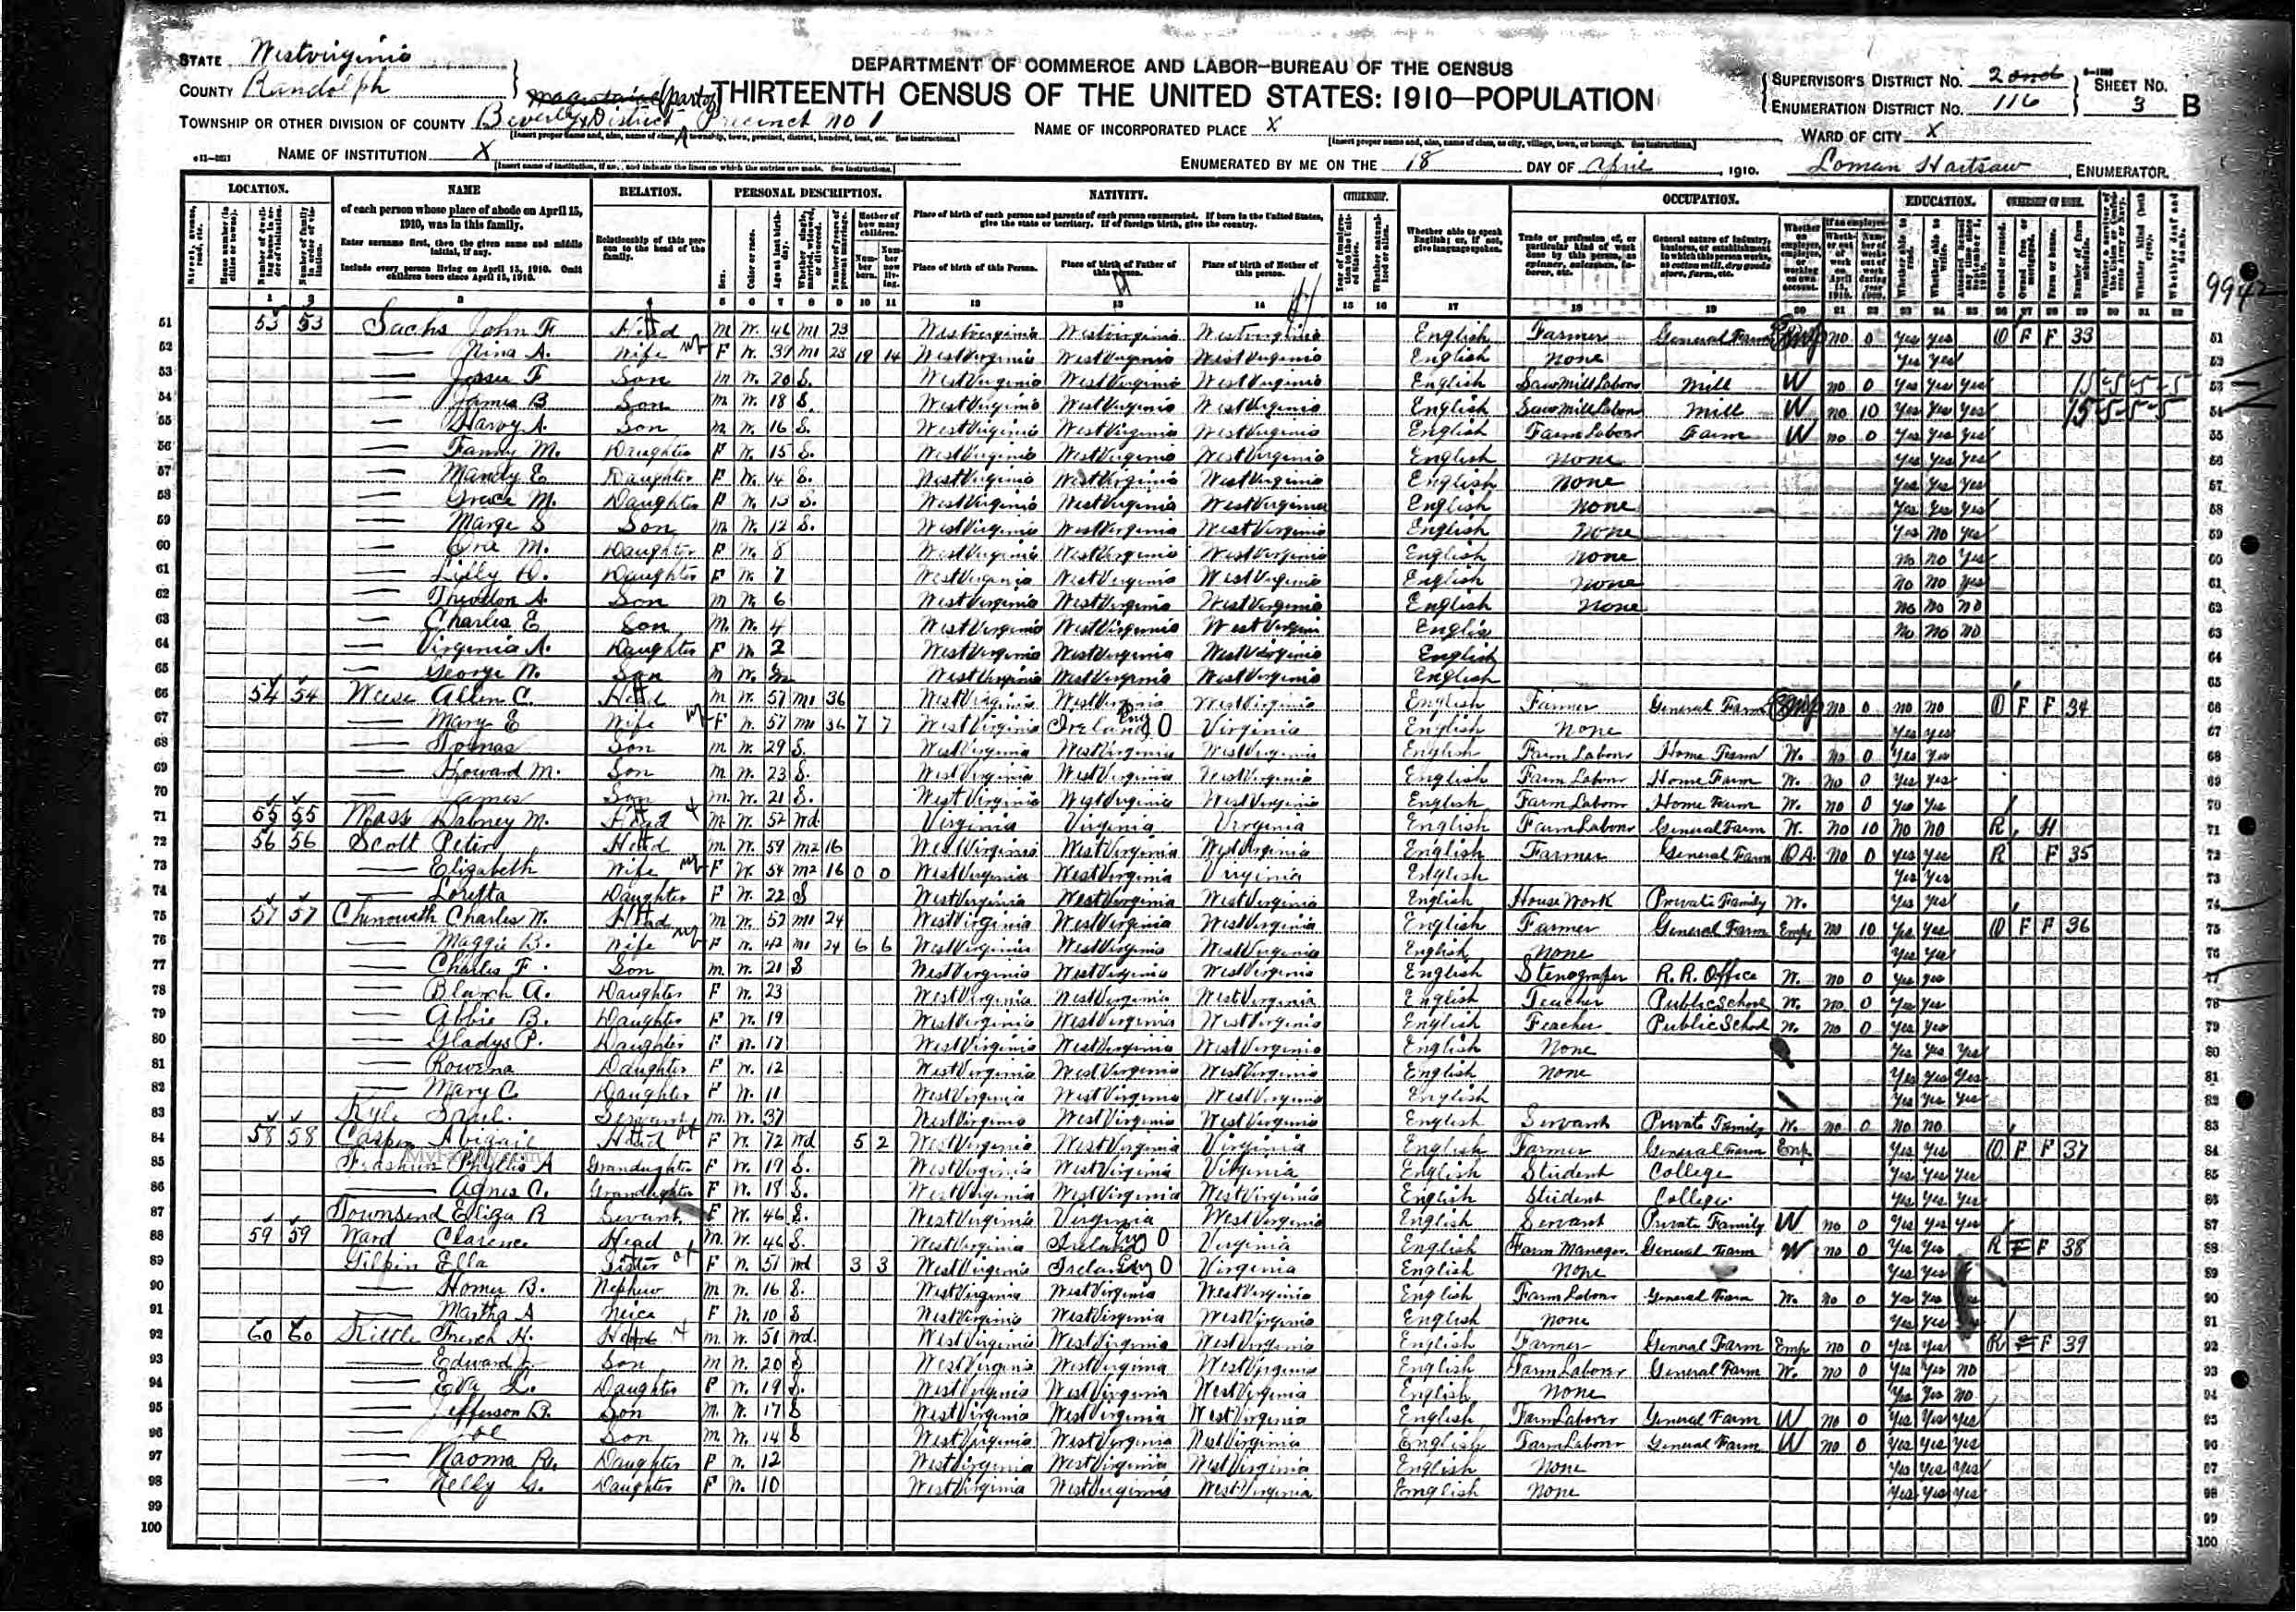 STATE Westvirginia
COUNTY Randolph
DEPARTMENT OF COMMERCE AND LABOR—BUREAU OF THE CENSUS
THIRTEENTH CENSUS OF THE UNITED STATES: 1910—POPULATION
SUPERVISOR'S DISTRICT NO. 2ond
ENUMERATION DISTRICT NO. 116
SHEET NO. 3 B
TOWNSHIP OR OTHER DIVISION OF COUNTY Beverly District Precinct no 1
magisterial (part of
NAME OF INCORPORATED PLACE X
WARD OF CITY X
NAME OF INSTITUTION X
ENUMERATED BY ME ON THE 18 DAY OF April, 1910. Loman Hartsaw, ENUMERATOR.
LOCATION. NAME RELATION. PERSONAL DESCRIPTION. NATIVITY. CITIZENSHIP. OCCUPATION. EDUCATION. OWNERSHIP OF HOME.
of each person whose place of abode on April 15, 1910, was in this family.
Enter surname first, then the given name and middle initial, if any.
Include every person living on April 15, 1910. Omit children born since April 15, 1910.
Relationship of this person to the head of the family.
Place of birth of each person and parents of each person enumerated. If born in the United States, give the state or territory. If of foreign birth, give the country.
Place of birth of this Person. Place of birth of Father of this person. Place of birth of Mother of this person.
Whether able to speak English; or, if not, give language spoken.
9942
51 53 53 Sachs John F Head m W. 46 m1 23 Westvirginia Westvirginia Westvirginia English Farmer General Farm Emp no 0 Yes Yes O F F 33 51
52 — Nina A. Wife F W. 39 m1 23 18 14 West Virginia West Virginia West Virginia English None Yes Yes 52
53 — Jesse F Son m W. 20 S. West Virginia West Virginia West Virginia English Saw Mill Labor Mill W no 0 Yes Yes Yes 53
54 — James B Son m W. 18 S. West Virginia West Virginia West Virginia English Saw Mill Labor Mill W no 10 Yes Yes Yes 54
55 — Harvy A. Son m W. 16 S. West Virginia West Virginia West Virginia English Farm Labour Farm W no 0 Yes Yes Yes 55
56 — Fanny M. Daughter F W. 15 S. West Virginia West Virginia West Virginia English None Yes Yes Yes 56
57 — Mandy E Daughter F W. 14 S. West Virginia West Virginia West Virginia English None Yes Yes Yes 57
58 — Grace M. Daughter F W. 13 S. West Virginia West Virginia West Virginia English None Yes Yes Yes 58
59 — Marge S Son m W. 12 S. West Virginia West Virginia West Virginia English None Yes No Yes 59
60 — Ore M. Daughter F W. 8 West Virginia West Virginia West Virginia English None No No Yes 60
61 — Lilly D. Daughter F W. 7 West Virginia West Virginia West Virginia English None No No Yes 61
62 — Theodor A. Son m W. 6 West Virginia West Virginia West Virginia English None No No No 62
63 — Charles E Son M. W. 4 West Virginia West Virginia West Virgini English No No No 63
64 — Virginia A. Daughter F W. 2 West Virginia West Virginia West Virginia English 64
65 — George W. Son m W. West Virginia West Virginia West Virginia English 65
66 54 54 Weese Allen C. Head m W. 57 m1 36 West Virginia West Virginia West Virginia English Farmer General Farm Emp no 0 no no O F F 34 66
67 — Mary E Wife F W. 57 m1 36 7 7 West Virginia Ireland Eng O Virginia English None Yes Yes 67
68 — Tomas Son m W. 29 S. West Virginia West Virginia West Virginia English Farm Labour Home Farm W. No 0 Yes Yes 68
69 — Howard M. Son m W. 23 S. West Virginia West Virginia West Virginia English Farm Labour Home Farm W. No 0 Yes Yes 69
70 — James Son m. W. 21 S. West Virginia West Virginia West Virginia English Farm Labour Home Farm W. no 0 Yes Yes 70
71 55 55 Moss Dabney M. Head m W. 52 Wd Virginia Virginia Virginia English Farm Labour General Farm W. No 10 No No R H 71
72 56 56 Scott Peter Head m. W. 59 m2 16 West Virginia West Virginia West Virginia English Farmer General Farm OA. No 0 Yes Yes R F 35 72
73 — Elizabeth Wife F W. 54 m2 16 0 0 West Virginia West Virginia Virginia English Yes Yes 73
74 — Loretta Daughter F W. 22 S West Virginia West Virginia West Virginia English House Work Private Family W. Yes Yes 74
75 57 57 Chenoweth Charles W. Head m W. 52 m1 24 West Virginia West Virginia West Virginia English Farmer General Farm Emp no 10 Yes Yes O F F 36 75
76 — Maggie B. Wife F W. 42 m1 24 6 6 West Virginia West Virginia West Virginia English None Yes Yes 76
77 — Charles F. Son m. W. 21 S West Virginia West Virginia West Virginia English Stenografer R.R. Office W. no 0 Yes Yes 77
78 — Blanch A. Daughter F W. 23 West Virginia West Virginia West Virginia English Teacher Public School W. no 0 Yes Yes 78
79 — Abbie B. Daughter F W. 19 West Virginia West Virginia West Virginia English Teacher Public School W. no 0 Yes Yes 79
80 — Gladys P. Daughter F W. 17 West Virginia West Virginia West Virginia English None Yes Yes Yes 80
81 — Rowena Daughter F W. 12 West Virginia West Virginia West Virginia English None Yes Yes Yes 81
82 — Mary C. Daughter F W. 11 West Virginia West Virginia West Virginia English Yes Yes Yes 82
83 Kyle Servant m. W. 37 West Virginia West Virginia West Virginia English Servant Private Family W. no 0 No No 83
84 58 58 Abigail Head F W. 72 Wd 5 2 West Virginia West Virginia Virginia English Farmer General Farm Emp Yes Yes O F F 37 84
85 Phyllis A Grandaughter F W. 19 S. West Virginia West Virginia Virginia English Student College Yes Yes Yes 85
86 — Agnes C. Grandaughter F W. 18 S. West Virginia West Virginia West Virginia English Student College Yes Yes Yes 86
87 Townsend Eliza R Servant F W. 46 S. West Virginia Virginia West Virginia English Servant Private Family W no 0 Yes Yes Yes 87
88 59 59 Ward Clarence Head m. W. 46 S. West Virginia Ireland Eng O Virginia English Farm Manager General Farm W no 0 Yes Yes R F F 38 88
89 Gilpin Ella Sister F W. 51 Wd 3 3 West Virginia Ireland Eng O Virginia English None Yes Yes 89
90 — Homer B. Nephew m W. 16 S. West Virginia West Virginia West Virginia English Farm Labour General Farm W. no 0 Yes Yes 90
91 — Martha A Neice F W. 10 S West Virginia West Virginia West Virginia English None Yes Yes 91
92 60 60 Kittle French H. Head m. W. 51 Wd. West Virginia West Virginia West Virginia English Farmer General Farm Emp no 0 Yes Yes R F 39 92
93 — Edward Son m W. 20 S West Virginia West Virginia West Virginia English Farm Labour General Farm W. no 0 Yes Yes No 93
94 — Eva L. Daughter F W. 19 S. West Virginia West Virginia West Virginia English None Yes Yes No 94
95 — Jefferson D. Son m. W. 17 S West Virginia West Virginia West Virginia English Farm Laborer General Farm W no 0 Yes Yes Yes 95
96 — Joe Son m W. 14 S West Virginia West Virginia West Virginia English Farm Labour General Farm W no 0 Yes Yes Yes 96
97 — Naoma Daughter F W. 12 West Virginia West Virginia West Virginia English None Yes Yes Yes 97
98 — Nelly G. Daughter F W. 10 West Virginia West Virginia West Virginia English None Yes Yes Yes 98
99 99
100 100